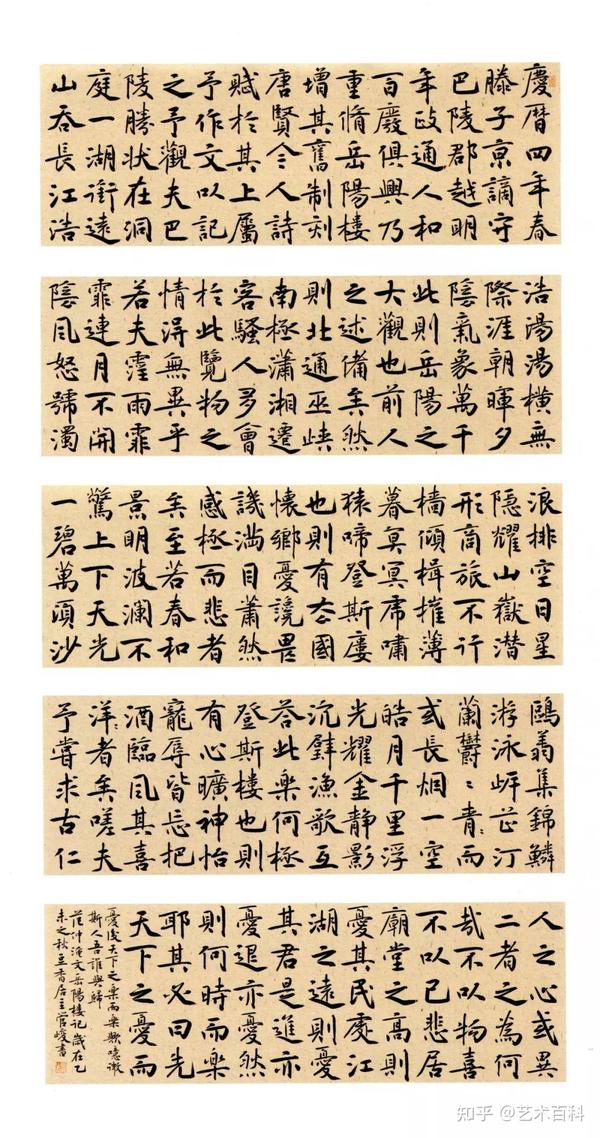 慶曆四年春
滕子京謫守
巴陵郡越明
年政通人和
百廢俱興乃
重脩岳陽樓
增其舊制刻
唐賢今人詩
賦於其上屬
予作文以記
之予觀夫巴
陵勝狀在洞
庭一湖銜遠
山吞長江浩
浩湯湯橫無
際涯朝暉夕
陰氣象萬千
此則岳陽之
大觀也前人
之述備矣然
則北通巫峽
南極瀟湘遷
客騷人多會
於此覽物之
情得無異乎
若夫霪雨霏
霏連月不開
陰風怒號濁
浪排空日星
隱耀山嶽潛
形商旅不行
檣傾楫摧薄
暮冥冥虎嘯
猿啼登斯樓
也則有去國
懷鄉憂讒畏
譏滿目蕭然
感極而悲者
矣至若春和
景明波瀾不
驚上下天光
一碧萬頃沙
鷗翔集錦鱗
游泳岸芷汀
蘭鬱〻青〻而
或長烟一空
皓月千里浮
光耀金靜影
沉璧漁歌互
答此樂何極
登斯樓也則
有心曠神怡
寵辱皆忘把
酒臨風其喜
洋〻者矣嗟夫
予嘗求古仁
人之心或異
二者之為何
哉不以物喜
不以己悲居
廟堂之高則
憂其民處江
湖之遠則憂
其君是進亦
憂退亦憂然
則何時而樂
耶其必曰先
天下之憂而
憂後天下之樂而樂歟噫微
斯人吾誰與歸
范仲淹文岳陽樓記歲在乙
未之秋香居主管峻書
知乎 @艺术百科